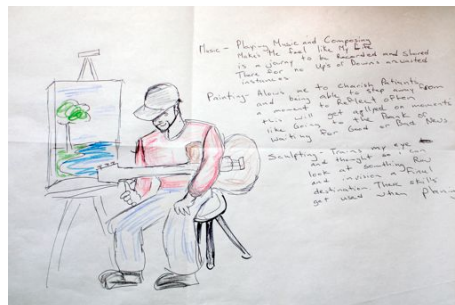 Music - Playing Music and Composing
Makes Me feel like My Life
is a journy to be Recorded and shared
There for no Up's or Downs unwanted
instances
Painting - Alows me to Charish Patients
and being able to step away from
a moment to Reflect often
this will get applied on moments
like Going to the Bank or
waiting For Good or Bad News
Sculpting - Trains my eye
and thought so I can
look at something Raw
and invision a Final
destination. These skills
get used when planing